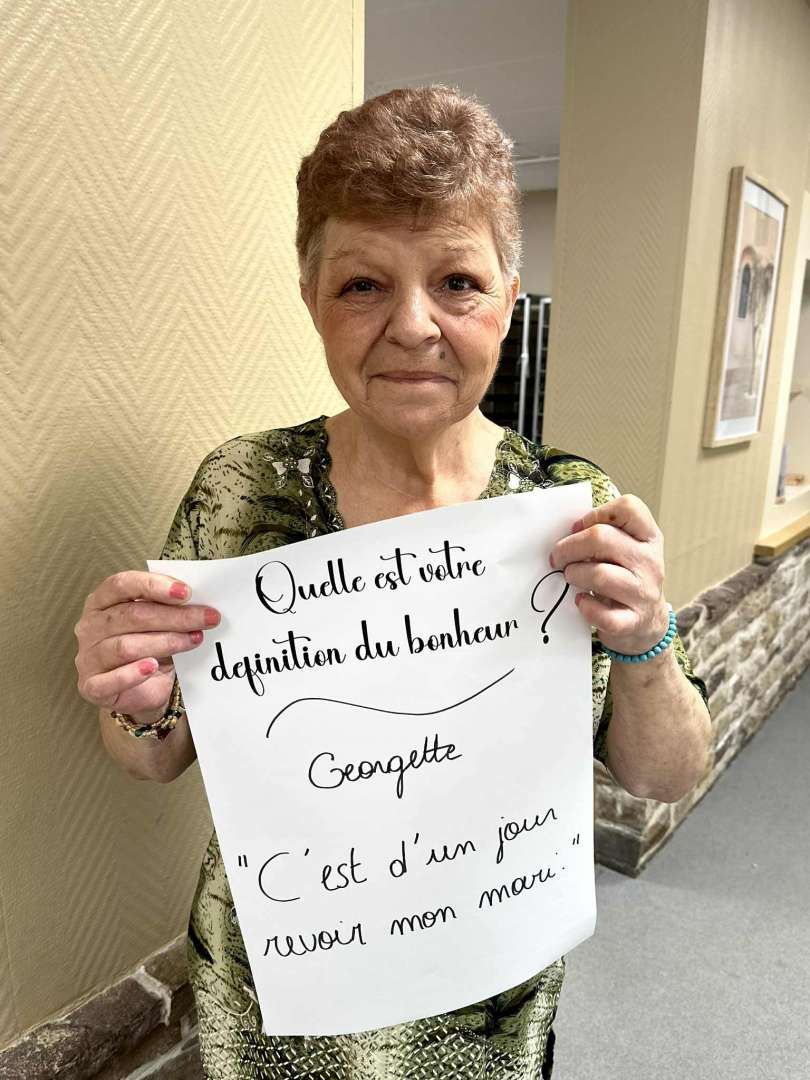 Quelle est votre
definition du bonheur ?
Georgette
"C'est d'un jour
revoir mon mari."